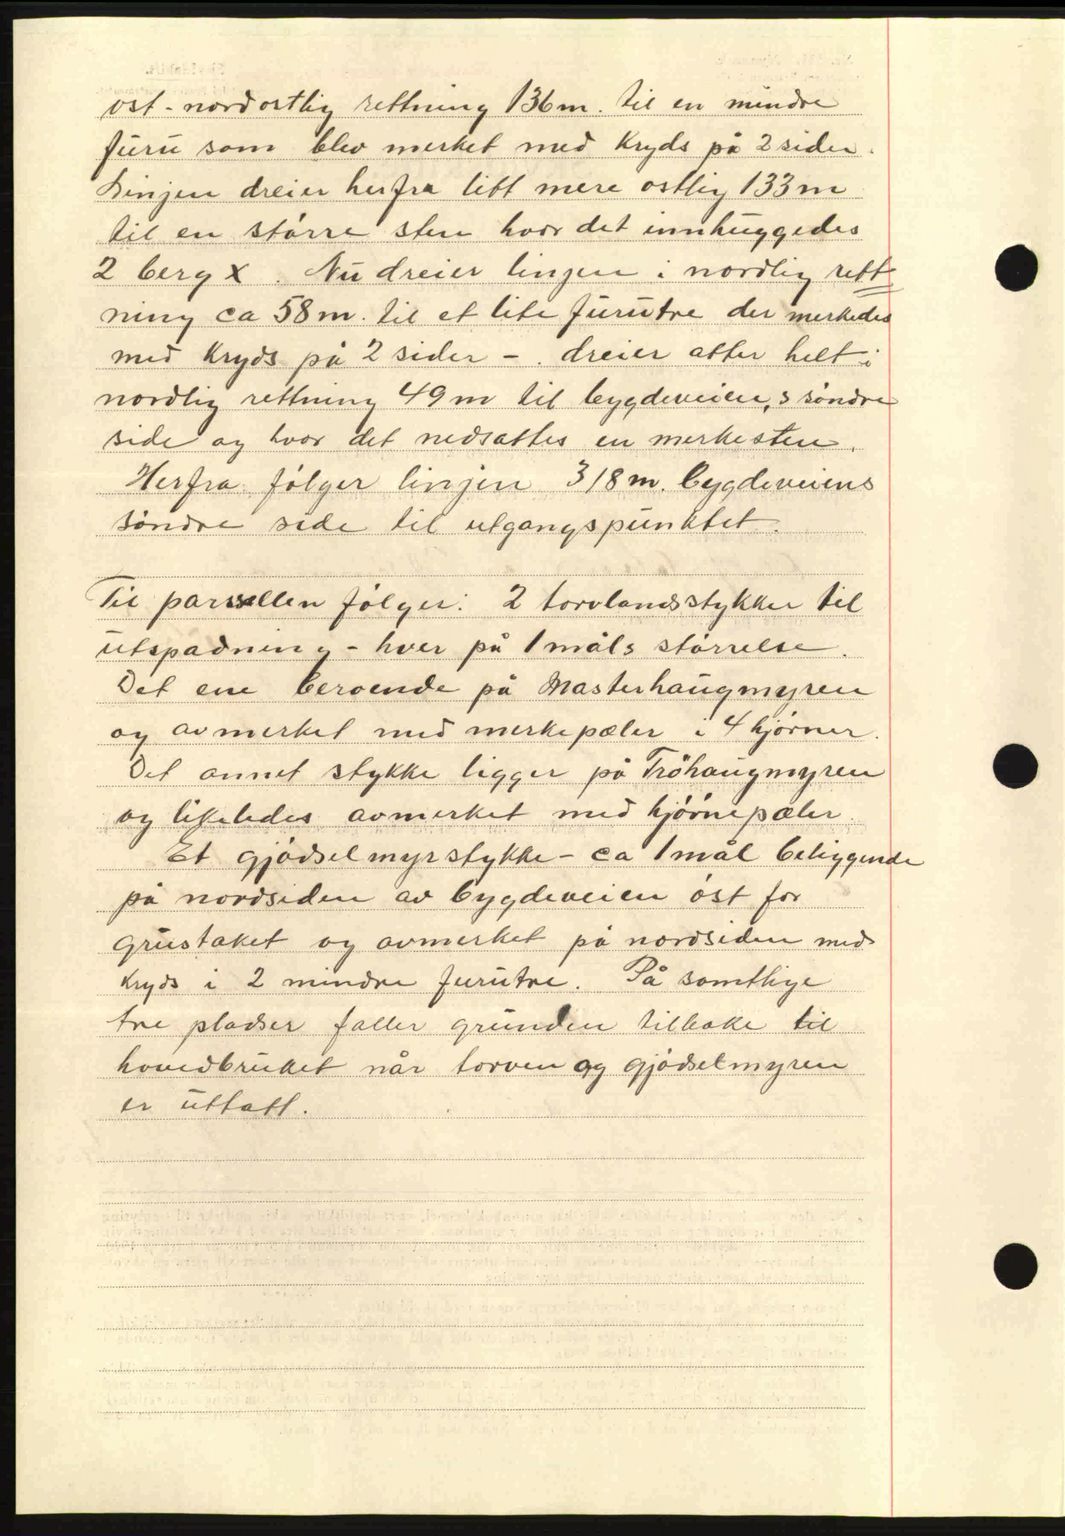 ost-nordostlig rettning 136 m. til en mindre
furu som blev merket med kryds på 2 sider.
Linjen dreier herfra litt mere ostlig 133 m
til en större sten hvor det innhuggedes
2 berg x. Nu dreier linjen i nordlig rett
ning ca 58 m. til et lite furutre der merkedes
med kryds på 2 sider -. dreier atter helt i
nordlig rettning 49 m til bygdeveien,s söndre
side og hvor det nedsattes en merkesten.
Herfra fölger linjen 318 m. bygdeveiens
söndre side til utgangspunktet.
Til parsellen fölger: 2 torvlandsstykker til
utspadning - hver på 1 måls störrelse.
Det ene beroende på Masterhaugmyren
og avmerket med merkepæler i 4 hjörner.
Det annet stykke ligger på Tröhaugmyren
og likeledes avmerket med hjörnepæler.
Et gjödselmyrstykke - ca 1 mål beliggende
på nordsiden av bygdeveien öst for
grustaket og avmerket på nordsiden med
kryds i 2 mindre furutre. På samtlige
tre pladser faller grunden tilbake til
hovedbruket når torven og gjödselmyren
er uttatt.